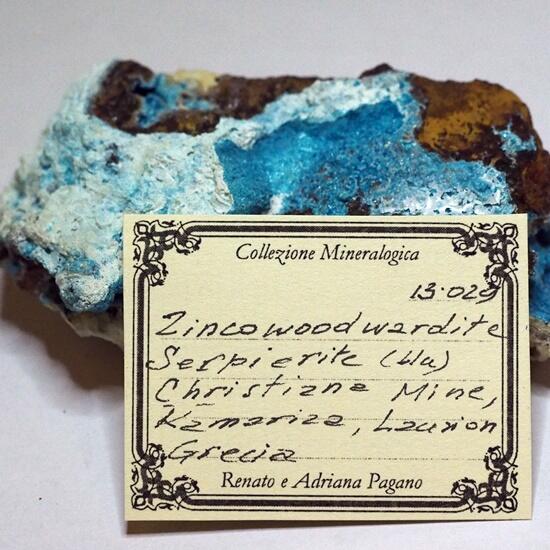 Collezione Mineralogica
13.029
Zincowoodwardite
Serpierite (Wa)
Christiana Mine,
Kamariza, Laurion
Grecia
Renato e Adriana Pagano